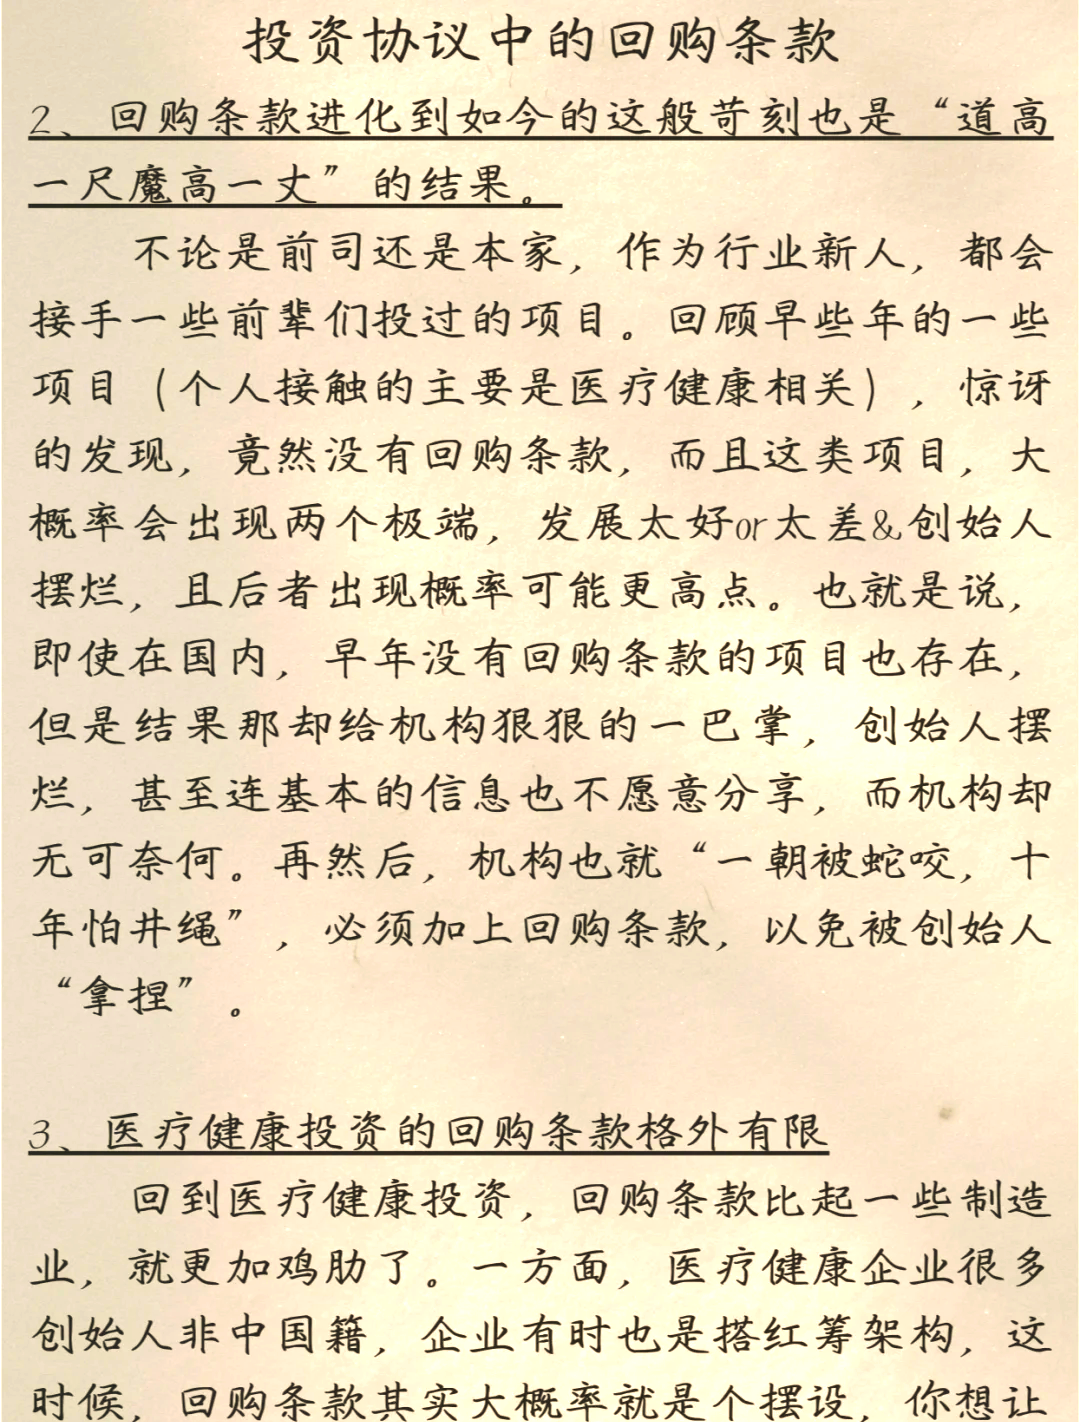 投资协议中的回购条款
2、回购条款进化到如今的这般苛刻也是“道高
一尺魔高一丈”的结果。
不论是前司还是本家，作为行业新人，都会
接手一些前辈们投过的项目。回顾早些年的一些
项目（个人接触的主要是医疗健康相关），惊讶
的发现，竟然没有回购条款，而且这类项目，大
概率会出现两个极端，发展太好or太差&创始人
摆烂，且后者出现概率可能更高点。也就是说，
即使在国内，早年没有回购条款的项目也存在，
但是结果那却给机构狠狠的一巴掌，创始人摆
烂，甚至连基本的信息也不愿意分享，而机构却
无可奈何。再然后，机构也就“一朝被蛇咬，十
年怕井绳”，必须加上回购条款，以免被创始人
“拿捏”。
3、医疗健康投资的回购条款格外有限
回到医疗健康投资，回购条款比起一些制造
业，就更加鸡肋了。一方面，医疗健康企业很多
创始人非中国籍，企业有时也是搭红筹架构，这
时候，回购条款其实大概率就是个摆设，你想让